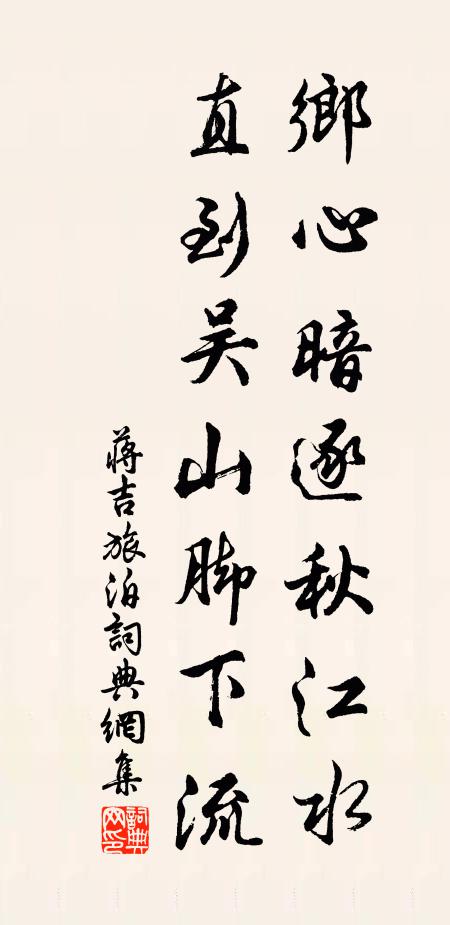 鄉心暗逐秋江水
直到吴山脚下流
蒋吉旅泊詞典網集
詞典網印